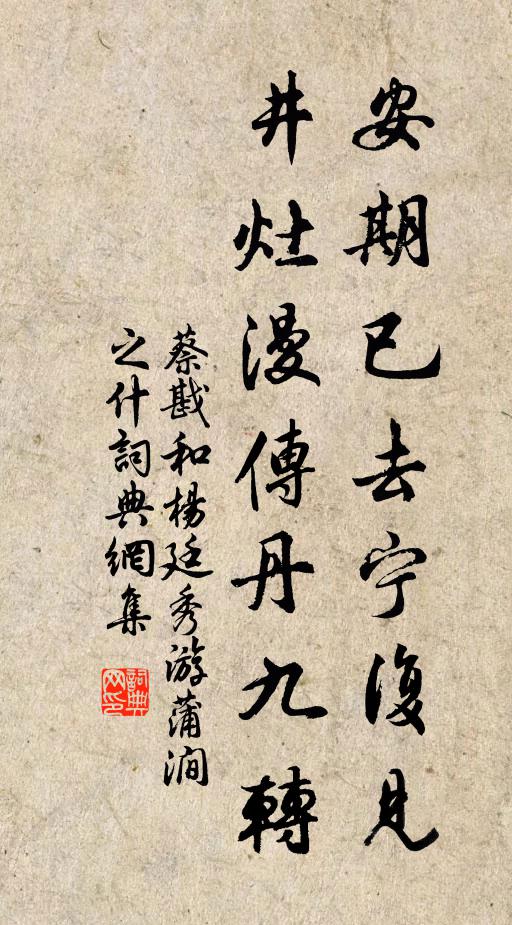 安期已去宁復見
井灶漫傳丹九轉
蔡戡和楊廷秀游蒲澗
之什詞典網集
詞典
网印